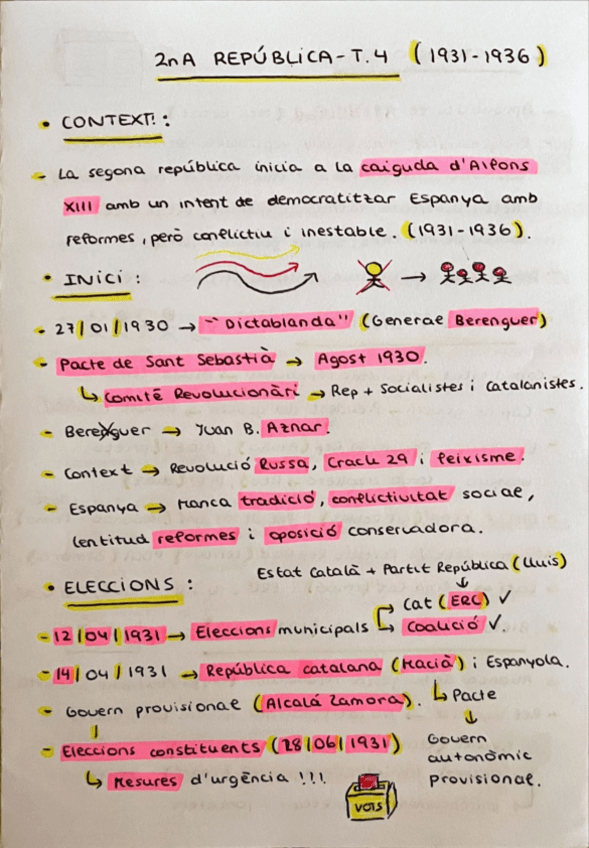 2nA REPÚBLICA-T.4 (1931-1936)
• CONTEXT:
- La segona república inicia a la caiguda d'Alfons
XIII amb un intent de democratitzar Espanya amb
reformes, però conflictiu i inestable. (1931-1936).
• INICI:
- 27/01/1930 → "Dictablanda" (General Berenguer)
- Pacte de Sant Sebastià → Agost 1930.
↳ Comitè Revolucionàri → Rep + Socialistes i Catalanistes.
- Berenguer → Juan B. Aznar.
- Context → Revolució Russa, Crack 29 i Feixisme.
- Espanya → Manca tradició, conflictivitat social,
lentitud reformes i oposició conservadora.
• ELECCIONS:
Estat Català + Partit República (Lluis)
↓
Cat (ERC) ✓
- 12/04/1931 → Eleccions municipals ↳ Coalició ✓.
- 14/04/1931 → República catalana (Macià) i Espanyola.
- Govern provisional (Alcalá Zamora). ↳ Pacte
↓
- Eleccions constituents (28/06/1931) Govern
autonòmic
↳ Mesures d'urgència !!! provisional.
VOTS